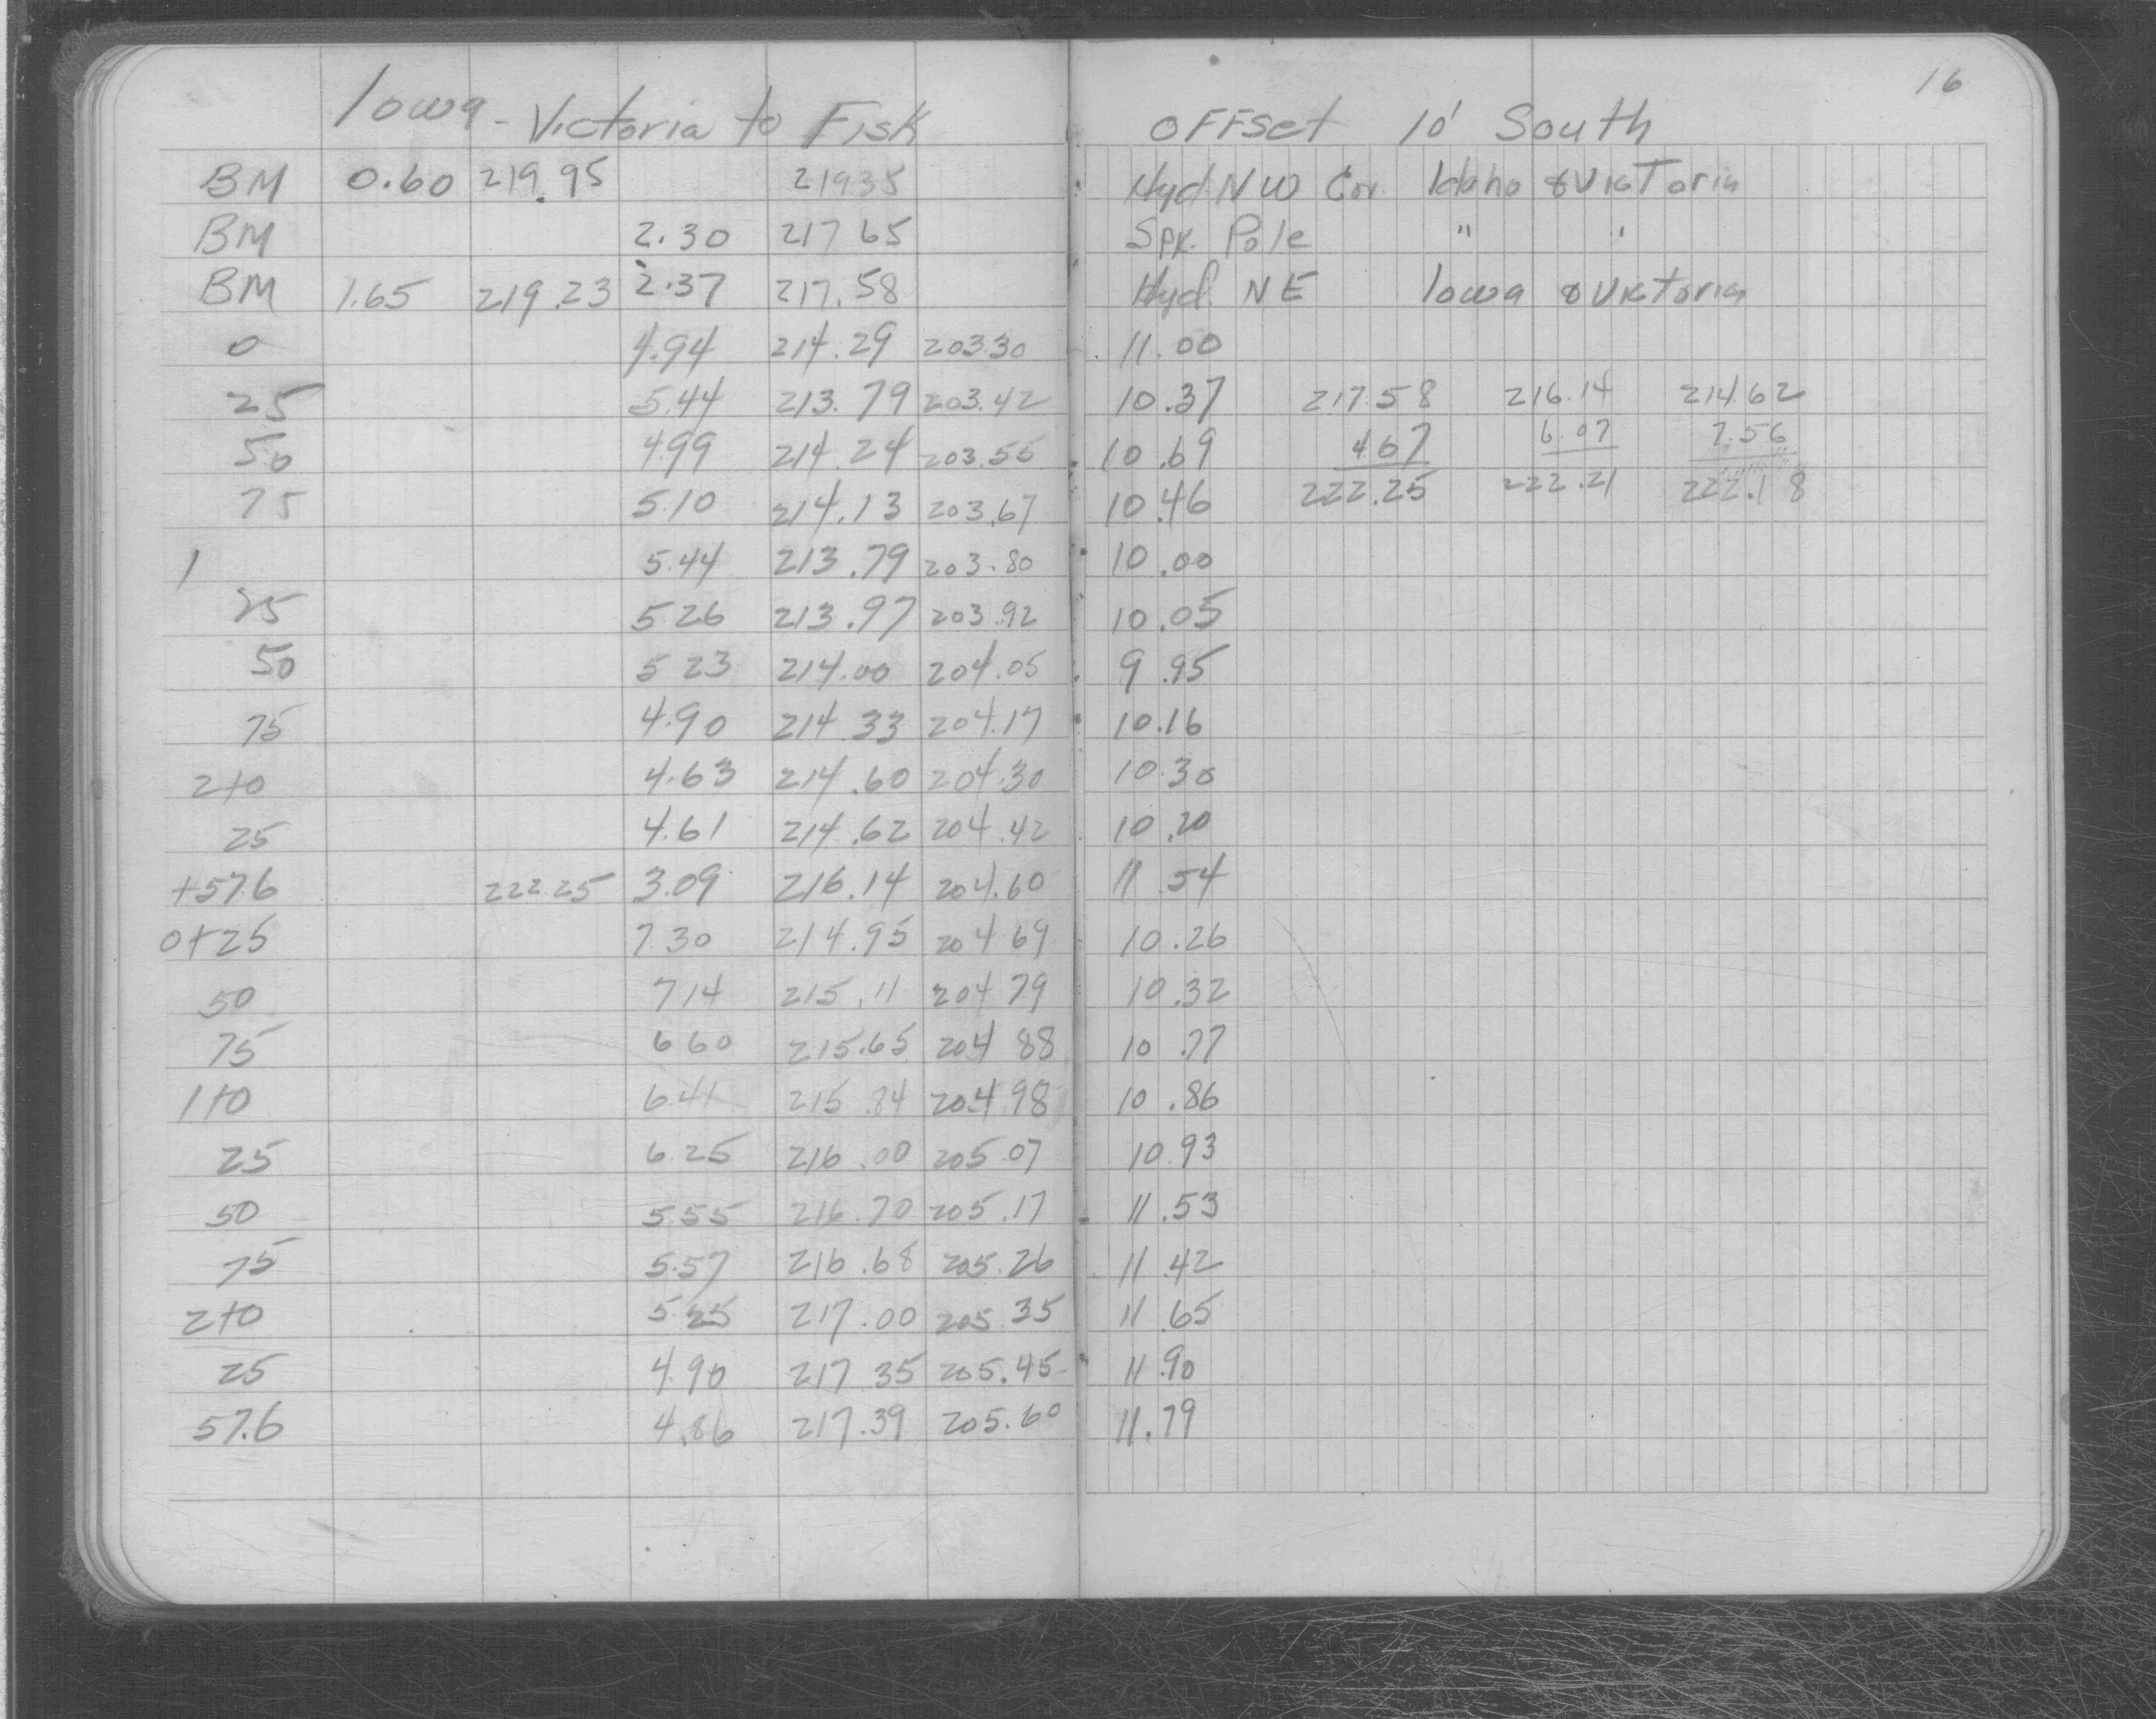 16
Iowa - Victoria to Fisk OFFset 10' South
BM 0.60 219.95 219 35 Hyd NW Cor. Idaho & Victoria
BM 2.30 217 65 Spk. Pole " "
BM 1.65 219.23 2.37 217.58 Hyd. NE Iowa & Victoria
0 4.94 214.29 203.30 11.00
25 5.44 213.79 203.42 10.37 217.58 216.14 214.62
50 4.99 214.24 203.55 10.69 4.67 6.07 7.56
75 5.10 214.13 203.67 10.46 222.25 222.21 222.18
1 5.44 213.79 203.80 10.00
25 5.26 213.97 203.92 10.05
50 5 23 214.00 204.05 9.95
75 4.90 214 33 204.17 10.16
2+0 4.63 214.60 204.30 10.30
25 4.61 214.62 204.42 10.20
+57.6 222.25 3.09 216.14 204.60 11.54
0+25 7.30 214.95 204 69 10.26
50 7 14 215.11 204 79 10.32
75 6 60 215.65 204 88 10.77
1+0 6.41 215.84 204 98 10.86
25 6.25 216.00 205.07 10.93
50 5.55 216.70 205.17 11.53
75 5.57 216.68 205.26 11.42
2+0 5.25 217.00 205 35 11.65
25 4.90 217 35 205.45 11.90
57.6 4.86 217.39 205.60 11.79